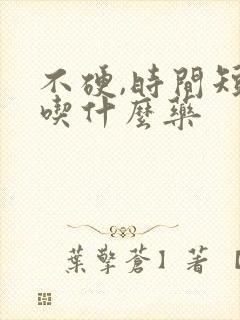 不硬,時間短
喫什麼藥
葉擎蒼】著【